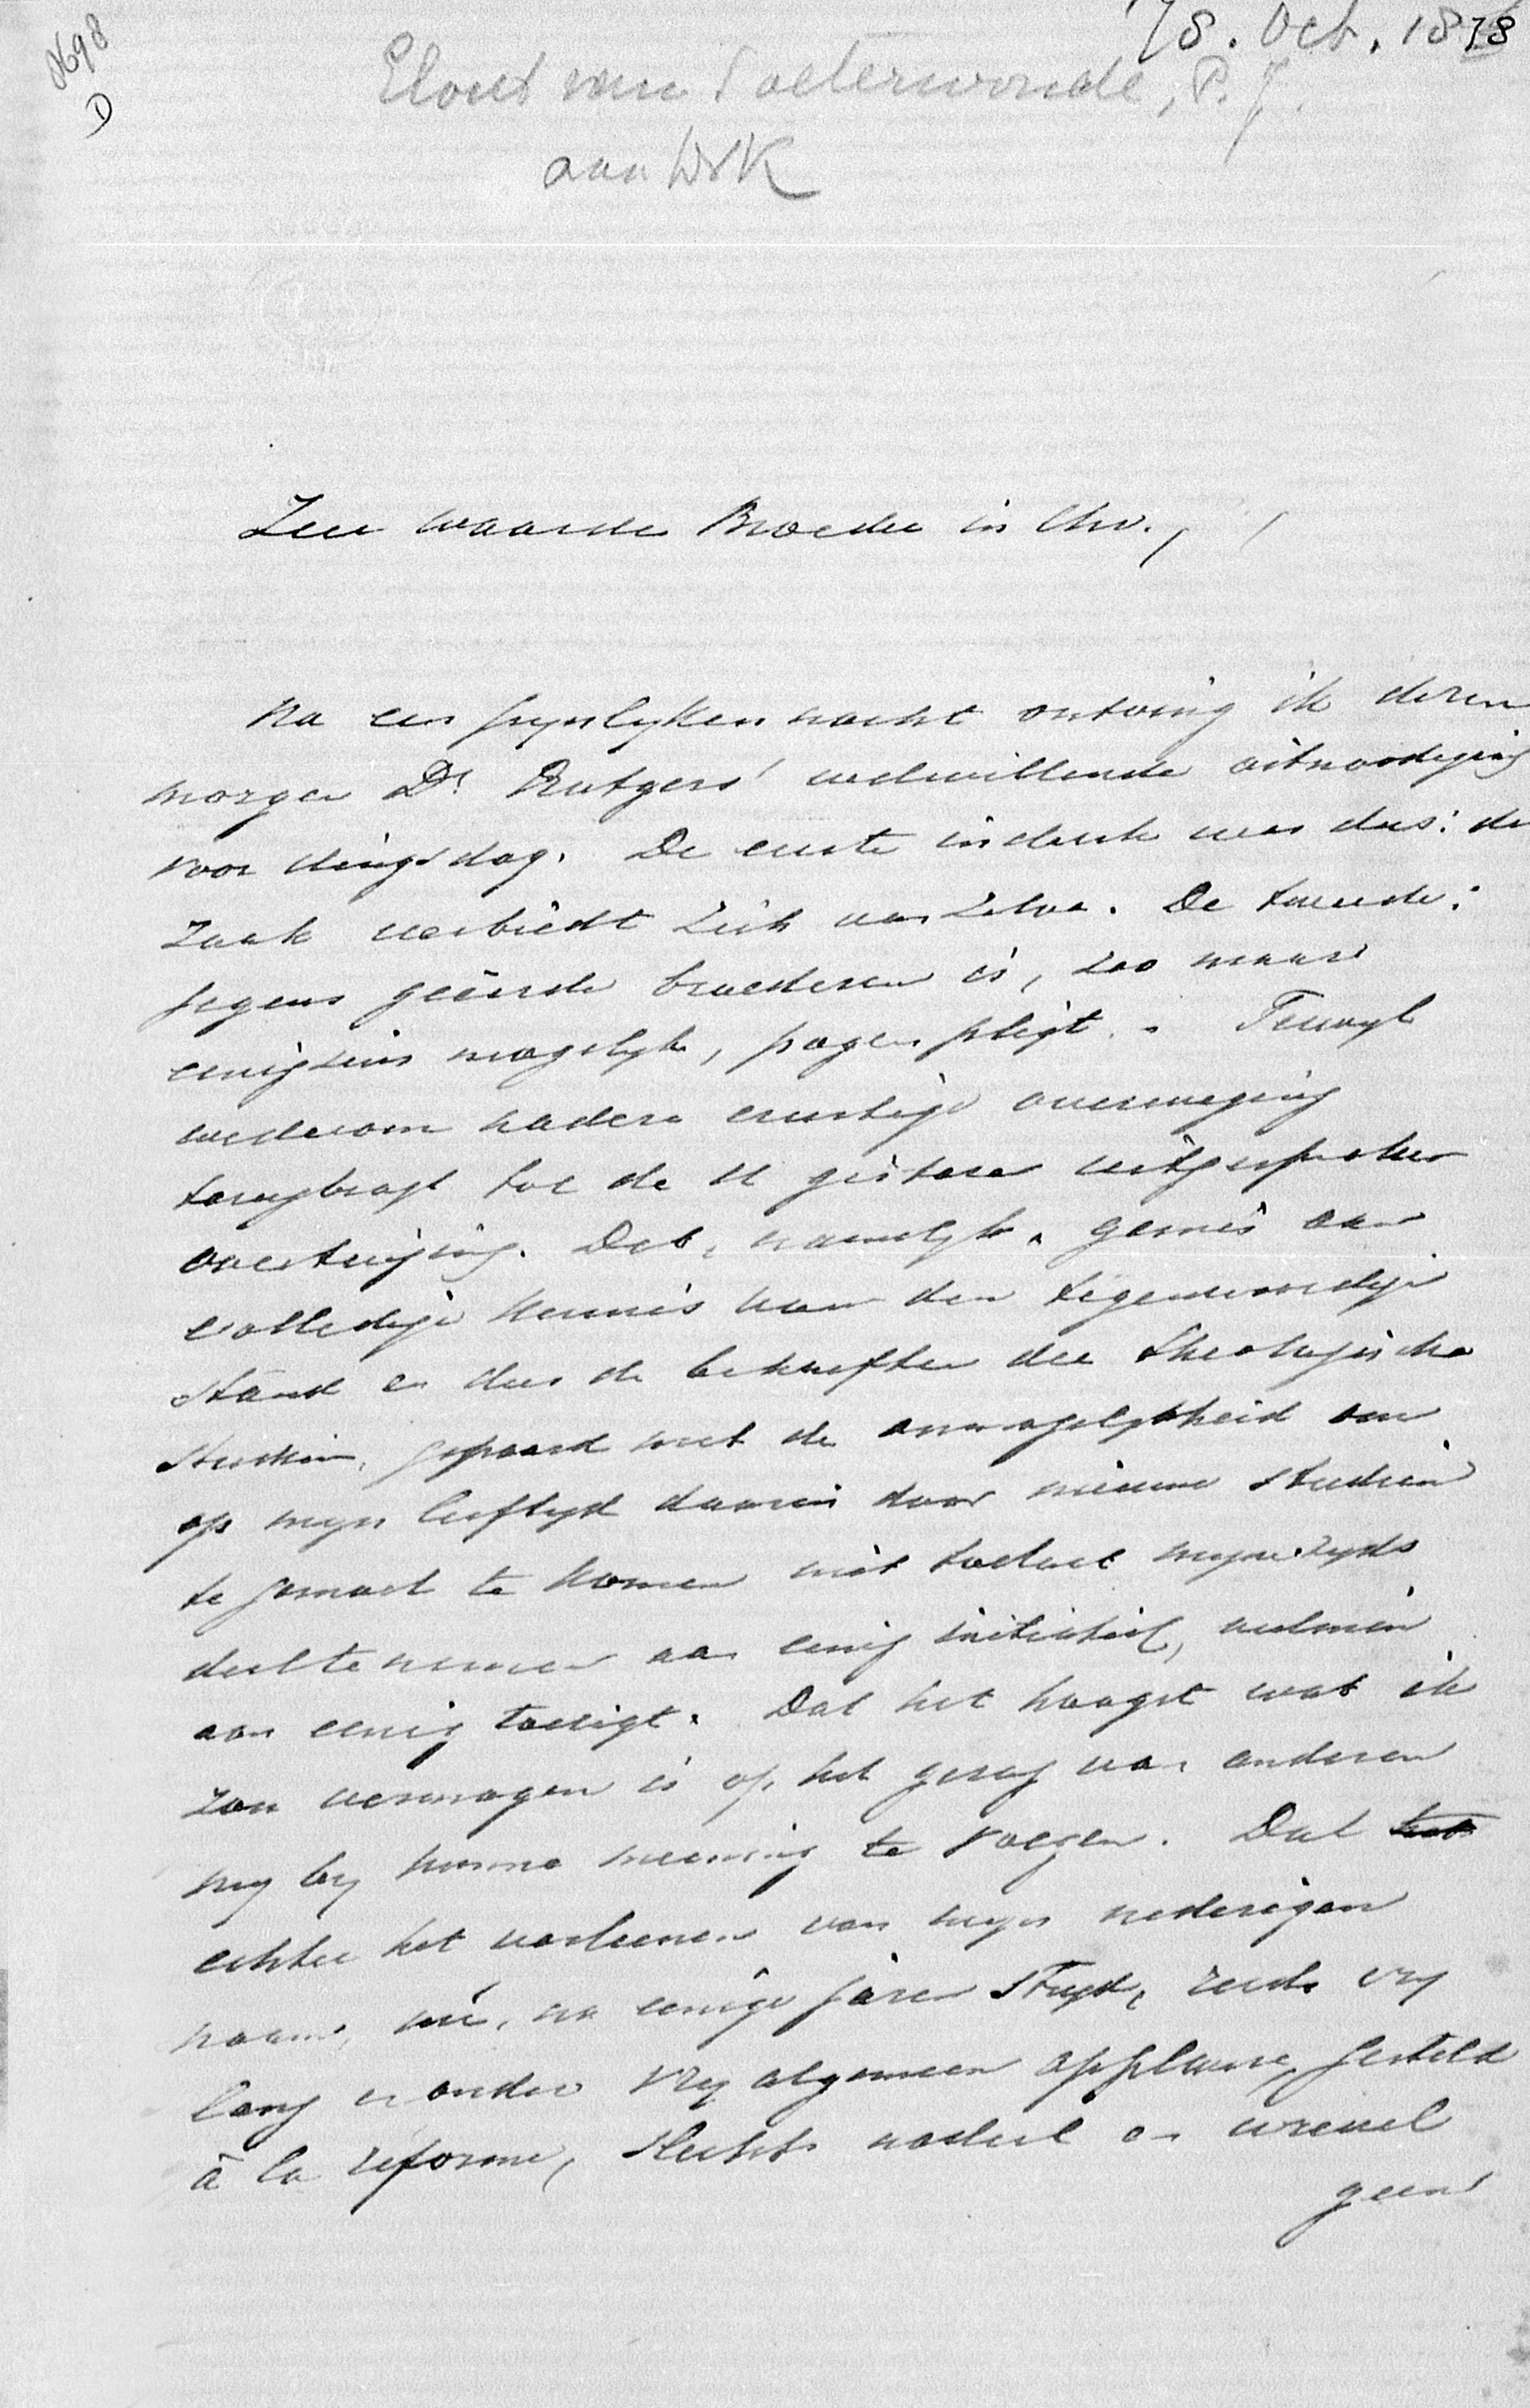 0698
D
18. Oct. 1878
Elout van Soeterwoude, P. J.
aan DrK
Zeer waarde Broeder in Chr.,
Na een pynlyken nacht ontving ik dezen
morgen Dr. Rutgers' welwillende uitnoodiging
voor dingsdag. De eerste indruk was dus: de
zaak verbiedt zich van zelve. De tweede:
jegens geëerde broederen is, zoo maar
eenigzins mogelyk, pogen pligt. Terwyl
wederom nadere ernstige overweging
terugbragt tot de U gisteren uitgesproken
overtuiging. Dat, namelyk, gemis aan
volledige kennis van den tegenwoordige
stand en dus de behoeften der theologische
studien, gepaard met de onmogelykheid om
op myn leeftyd daarin door nieuwe studien
te gemoet te komen niet toelaat mynerzyds
deel te nemen aan eenig initiatief, veelmin
aan eenig toezigt. Dat het hoogst wat ik
zou vermogen is op het gezag van anderen
my by hunne meening te voegen. Dat
echter het verleenen van myn nederigen
naam, nu, na eenige jaren stryd, reeds vry
lang en onder vry algemeen applaus, gesteld
à la réforme, slechts nadeel en wrevel
geen